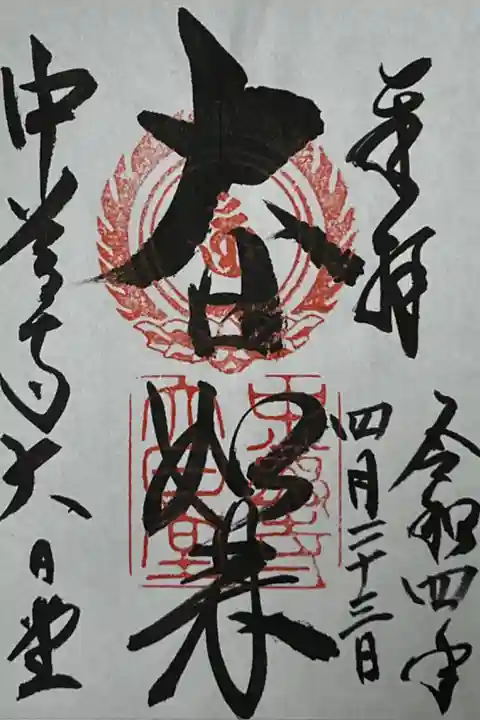 奉拝
令和四年
四月二十三日
大日如来
中尊寺大日堂